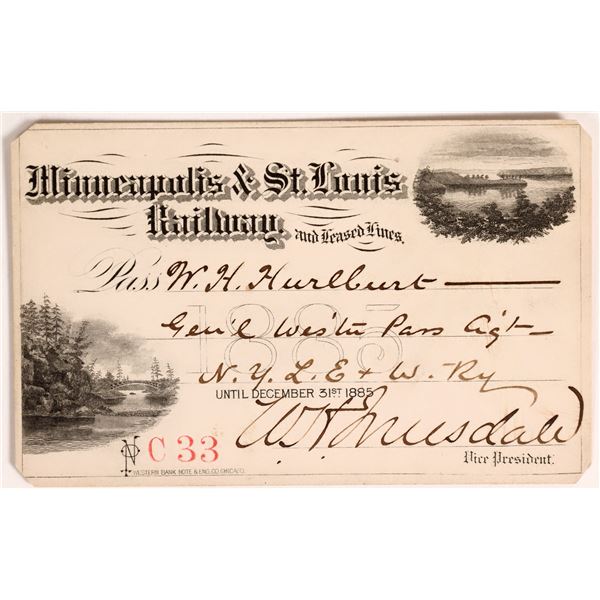 Minneapolis & St. Louis
Railway, and Leased Lines.
Pass W. H. Hurlburt
1885
Gen'l Westn Pass Agt
N. Y. L. E & W. Ry
UNTIL DECEMBER 31ST 1885
No C 33
W. H. Truesdale
Vice President.
WESTERN BANK NOTE & ENG. CO. CHICAGO.